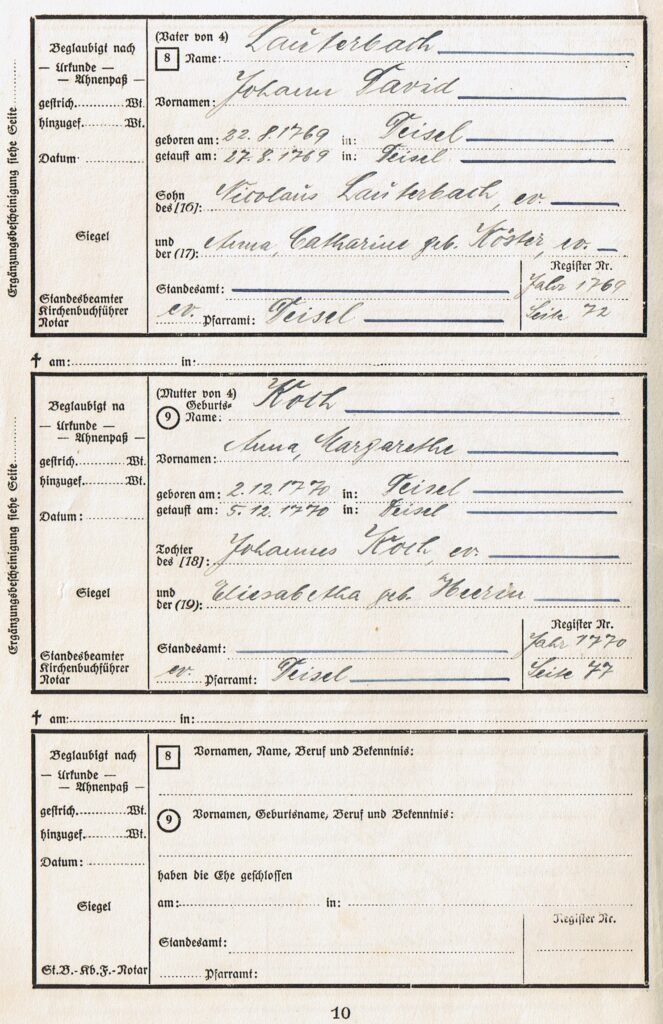 Ergänzungsbescheinigung siehe Seite
Beglaubigt nach
— Urkunde —
— Ahnenpaß —
gestrich. Wt.
hinzugef. Wt.
Datum
Siegel
Standesbeamter
Kirchenbuchführer
Notar
(Vater von 4)
8 Name: Lauterbach
Vornamen: Johann David
geboren am: 22. 8. 1769 in: Deisel
getauft am: 27. 8. 1769 in: Deisel
Sohn
des [16]: Nicolaus Lauterbach, ev.
und
der (17): Anna, Catharine geb. Köster, ev.
Standesamt:
ev. Pfarramt: Deisel
Register Nr.
Jahr 1769
Seite 72
† am: in:
Ergänzungsbescheinigung siehe Seite
Beglaubigt na
— Urkunde —
— Ahnenpaß —
gestrich. Wt.
hinzugef. Wt.
Datum:
Siegel
Standesbeamter
Kirchenbuchführer
Notar
(Mutter von 4)
9 Geburts-
Name: Koch
Vornamen: Anna, Margarethe
geboren am: 2. 12. 1770 in: Deisel
getauft am: 5. 12. 1770 in: Deisel
Tochter
des [18]: Johannes Koch, ev.
und
der (19): Eliesabetha geb. Heerin
Standesamt:
ev. Pfarramt: Deisel
Register Nr.
Jahr 1770
Seite 77
† am: in:
Beglaubigt nach
— Urkunde —
— Ahnenpaß —
gestrich. Wt.
hinzugef. Wt.
Datum:
Siegel
St.B.-Kb.F.-Notar
8 Vornamen, Name, Beruf und Bekenntnis:
9 Vornamen, Geburtsname, Beruf und Bekenntnis:
haben die Ehe geschlossen
am: in:
Standesamt:
Pfarramt:
Register Nr.
10